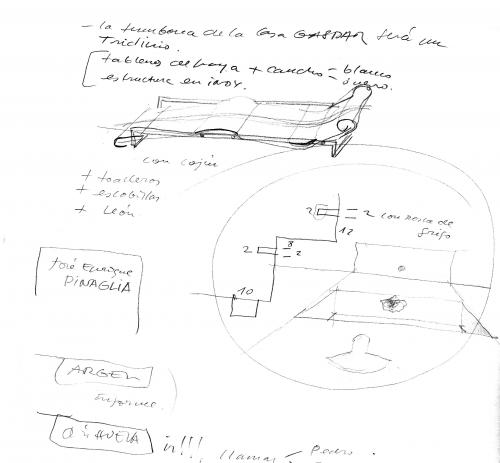 - la tumbona de la Casa GASPAR será un
Triclinio.
tableros de haya + caucho = blanco
ó negro.
estructura en inox.
con cojín
+ toalleros
+ escobillas
+ León
2 = 2 con rosca de
grifo
12
2 8
2
10
José Enrique
PINAGLIA
ARGEL
informe.
in!!! llamar - Pedro.